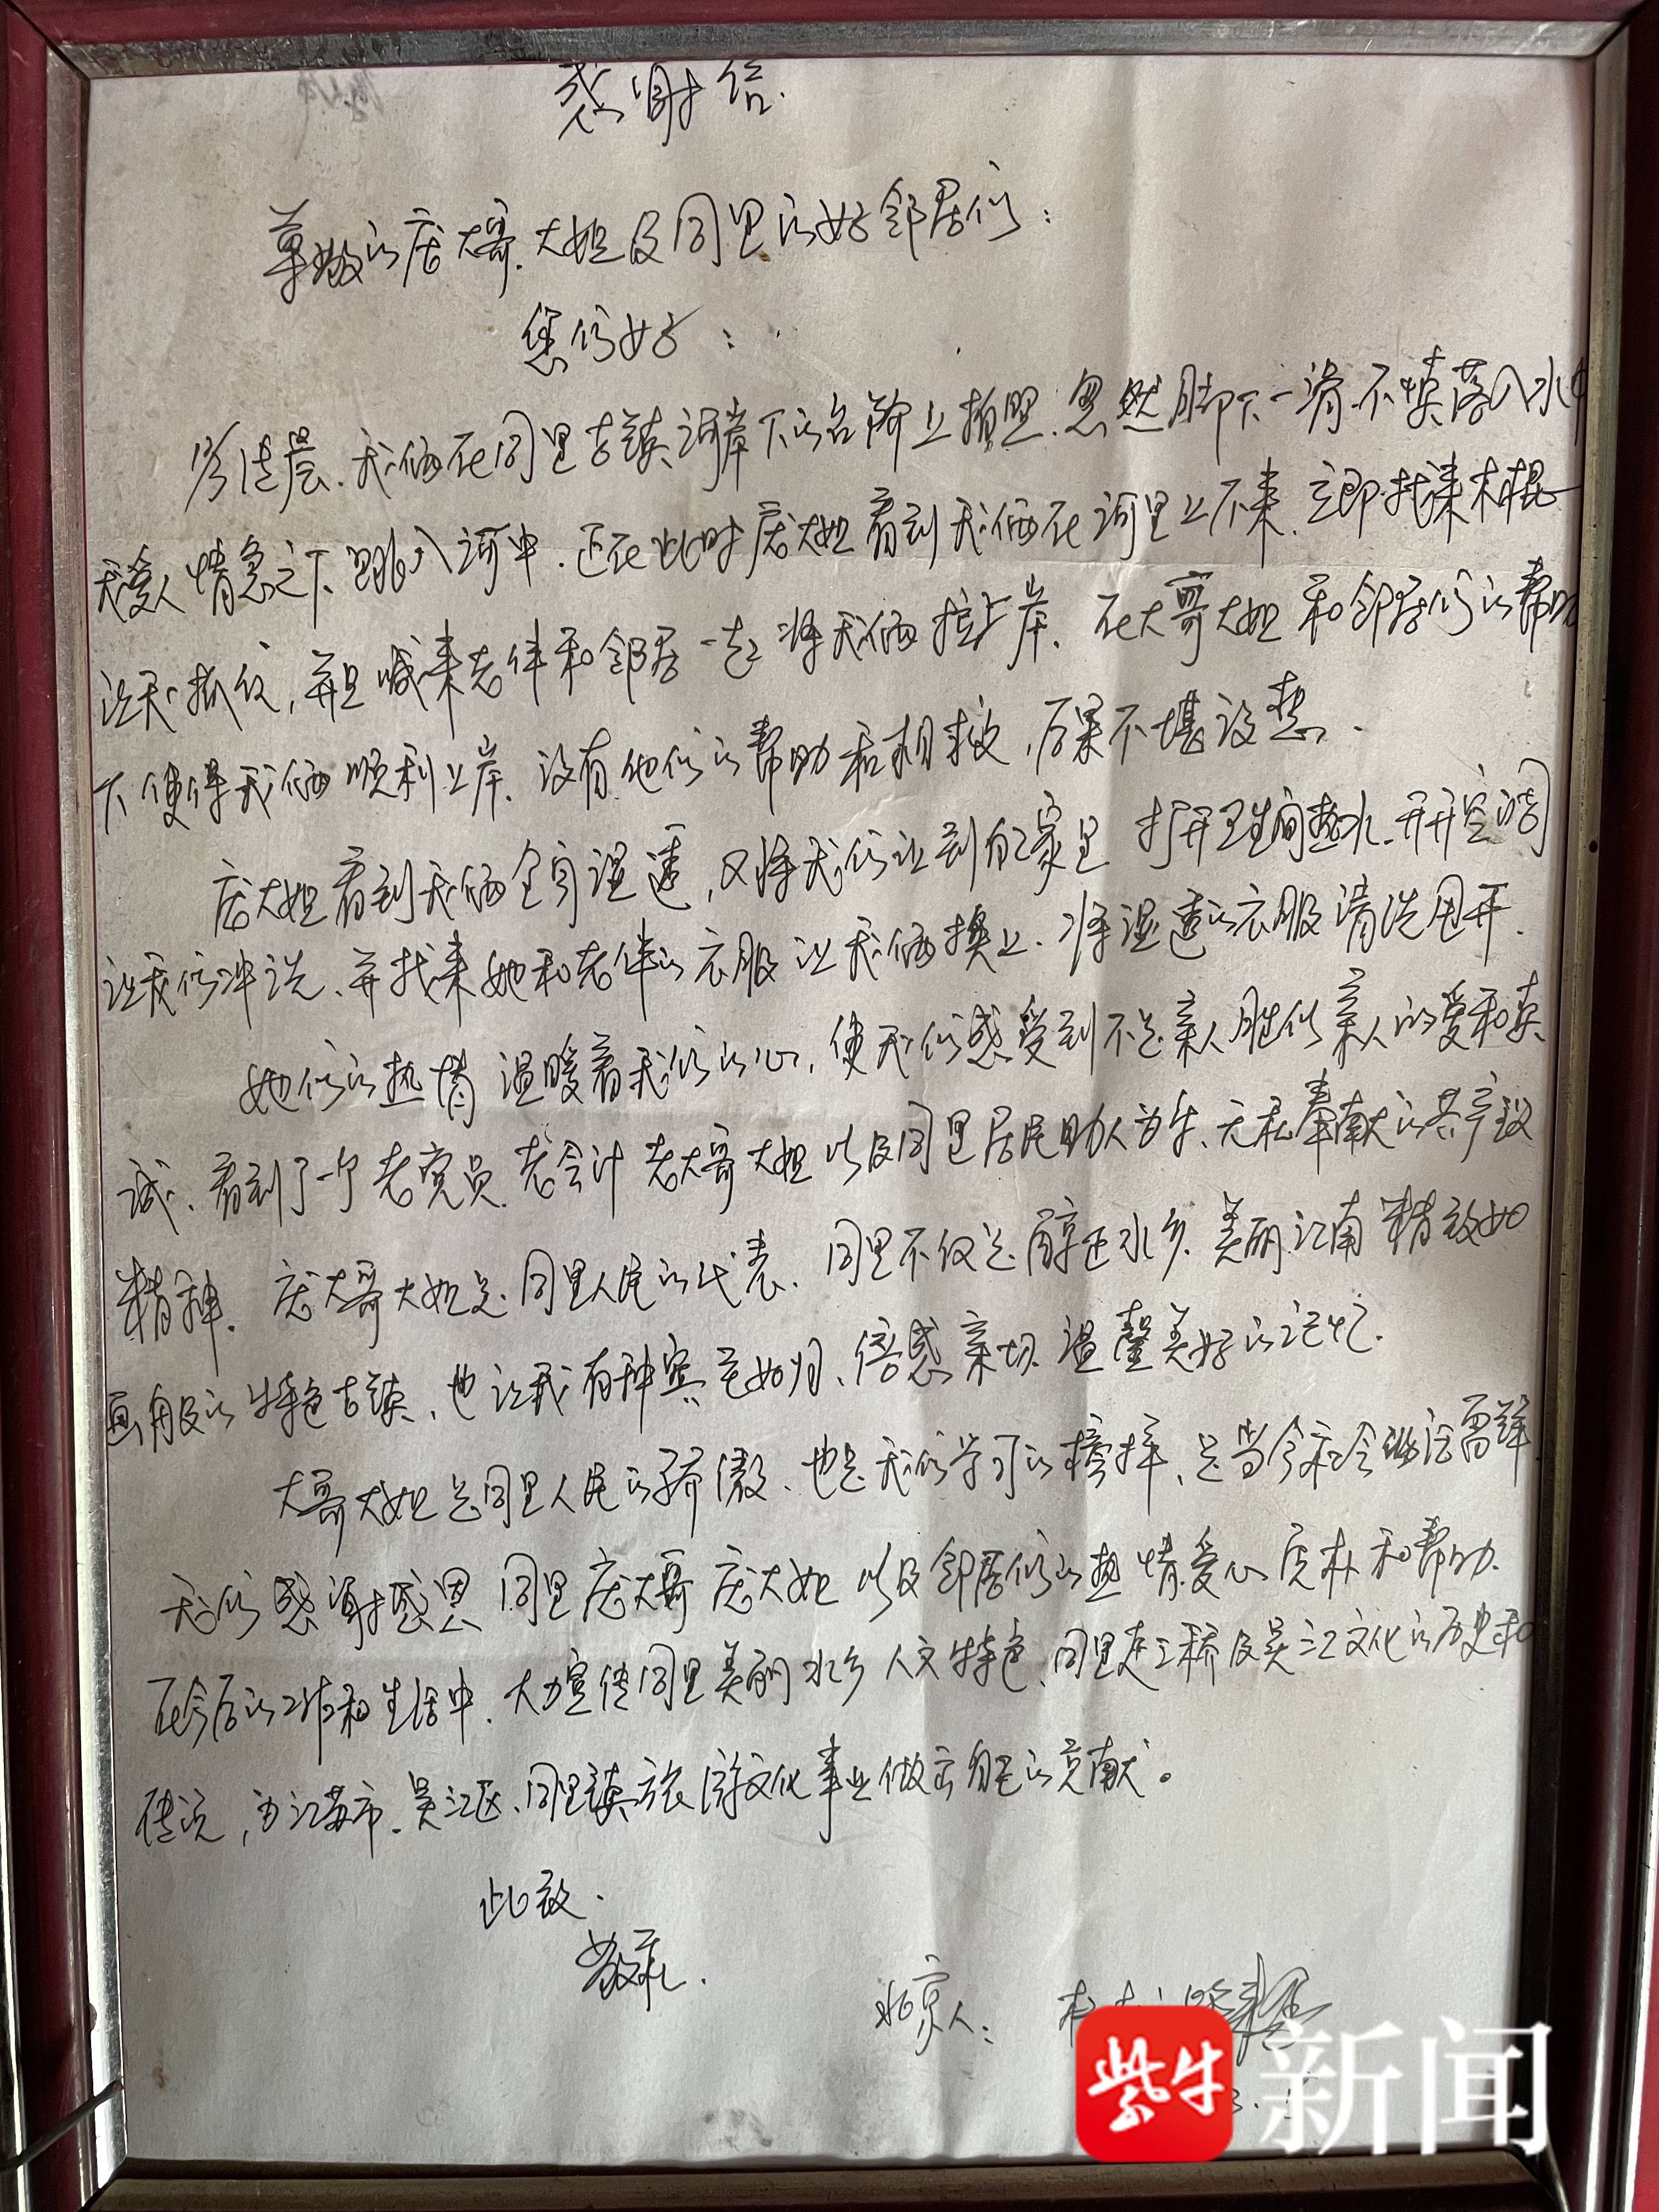 感谢信.
尊敬的庞大哥.大姐及同里的好邻居们：
您们好：
清晨.我俩在同里古镇河岸下的台阶上拍照.忽然脚下一滑.不慎落入水中
爱人情急之下跳入河中.正在此时庞大姐看到我俩在河里上不来.立即找来木棍
让我抓住,并且喊来老伴和邻居一起将我俩拉上岸.在大哥大姐和邻居们的帮助
下使得我俩顺利上岸.没有他们的帮助和相救,后果不堪设想.
庞大姐看到我俩全身湿透,又将我们让到自家里 打开卫生间热水.开开空调
让我们冲洗、并找来她和老伴的衣服让我俩换上.将湿透的衣服清洗甩开.
她们的热情温暖着我们的心,使我们感受到不是亲人胜似亲人的爱和真
诚.看到了一个老党员.老会计 老大哥大姐以及同里居民助人为乐、无私奉献的共产
精神.庞大哥大姐是同里人民的代表.同里不仅是水乡.美丽江南精致如
画般的特色古镇、也让我有种宾至如归、倍感亲切.温馨美好的记忆.
大哥大姐是同里人民的骄傲、也是我们学习的榜样、是当今社会活雷锋
我们感谢感恩同里庞大哥庞大姐以及邻居们的热情.爱心质朴和帮助.
在今后的工作和生活中.大力宣传同里美丽水乡人文特色、同里走三桥及吴江文化的历史和
传说,为江苏市.吴江区、同里镇旅游文化事业做出自己的贡献。
此致.
敬礼.
北京人：
紫牛新闻